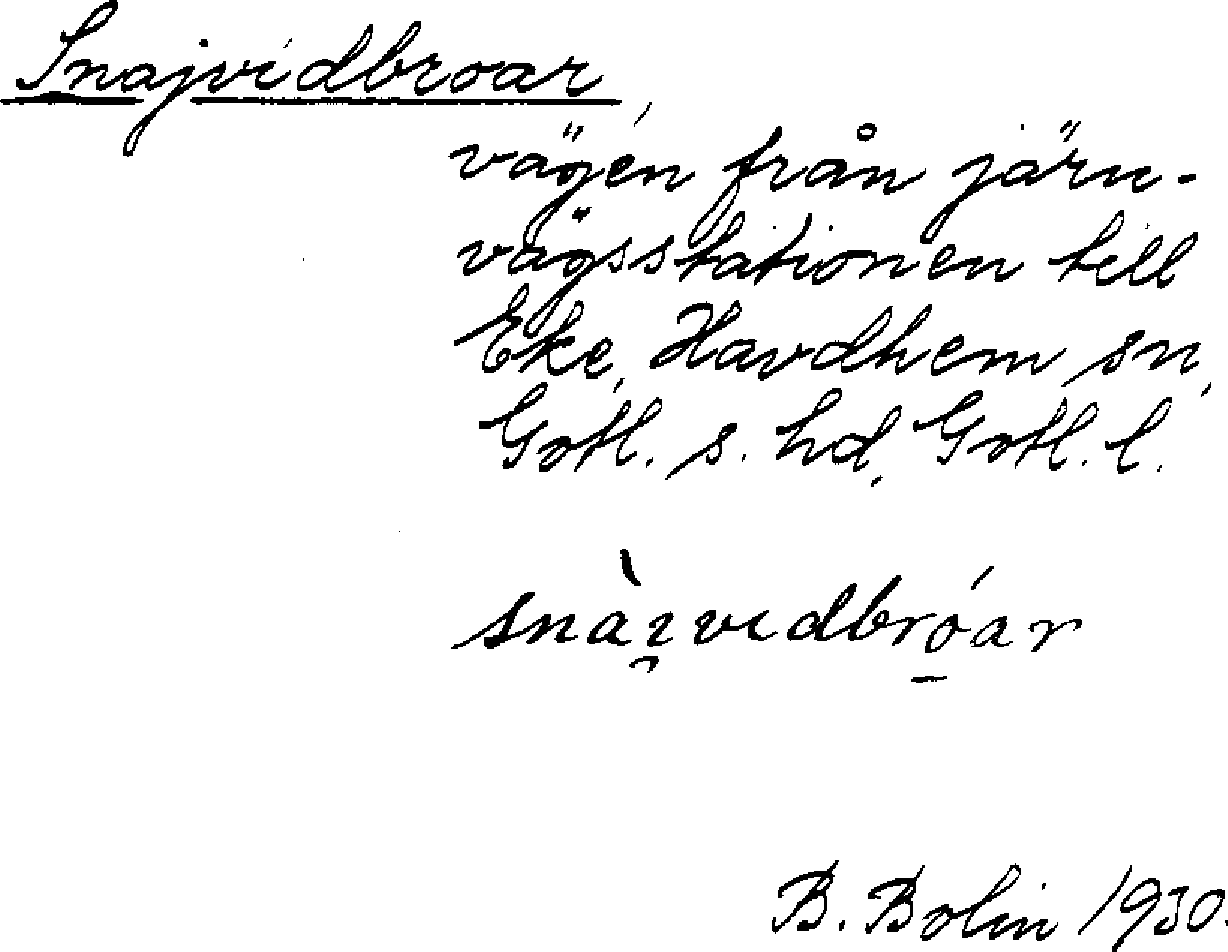 Snajvidbroar,
vägen från järn-
vägsstationen till
Eke, Havdhem sn,
Gotl. s. hd, Gotl. l.
snàɪ̯vɪdbró̱ar
B. Bolin 1930.